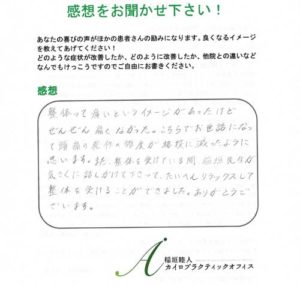 感想をお聞かせ下さい!
あなたの喜びの声がほかの患者さんの励みになります。良くなるイメージ
を教えてあげてください!
どのような症状が改善したか、どのように改善したか、他院との違いなど
なんでもけっこうですのでご自由にお書きください。
感想
整体って痛いというイメージがあったけど
ぜんぜん痛くなかった。こちらでお世話になっ
て頭痛の発作の頻度が格段に減ったように
思います。また、整体を受けている間、稲垣先生が
気さくに話しかけて下さって、たいへんリラックスして
整体を受けることができました。ありがとうご
ざいます。
稲垣睦人
カイロプラクティックオフィス